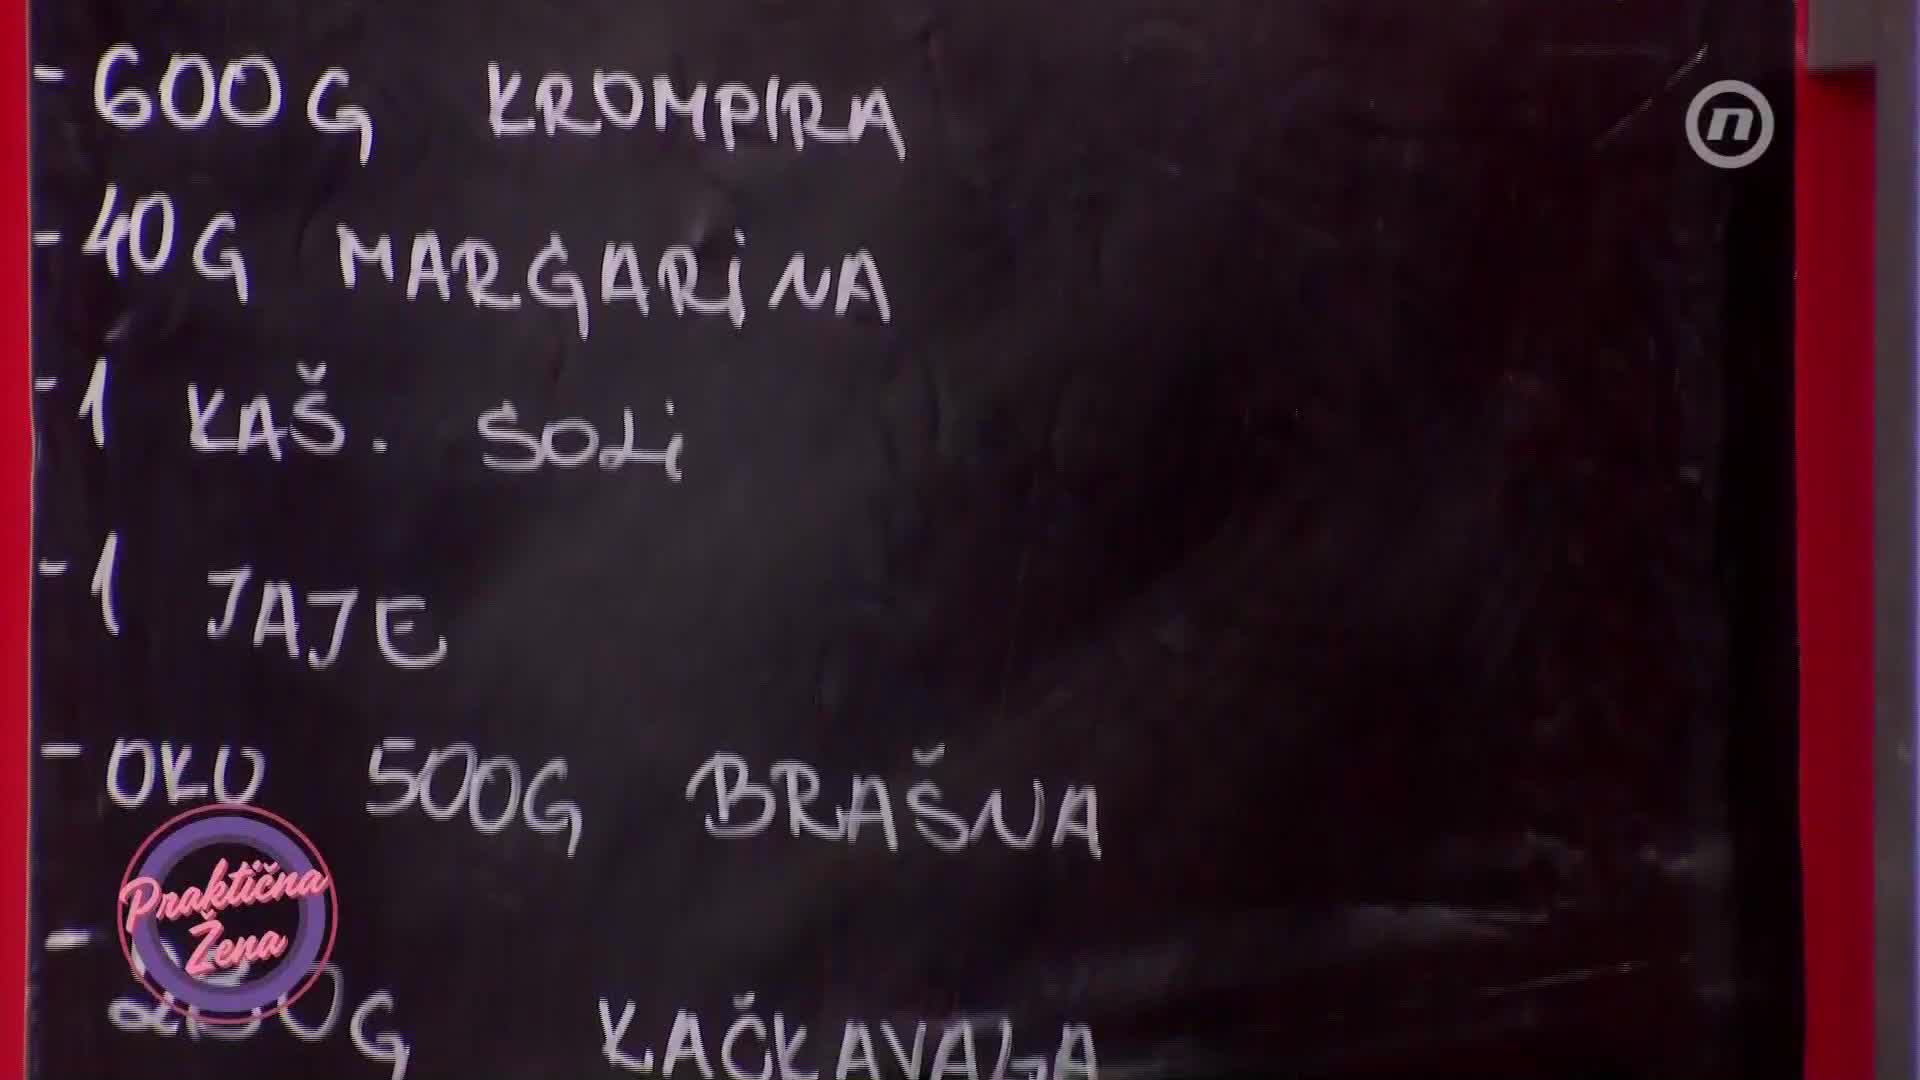 - 600G KROMPIRA
n
- 40G MARGARINA
- 1 KAŠ. SOLI
- 1 JAJE
- OKO 500G BRAŠNA
Praktična
Žena
- G KAČKAVALJA